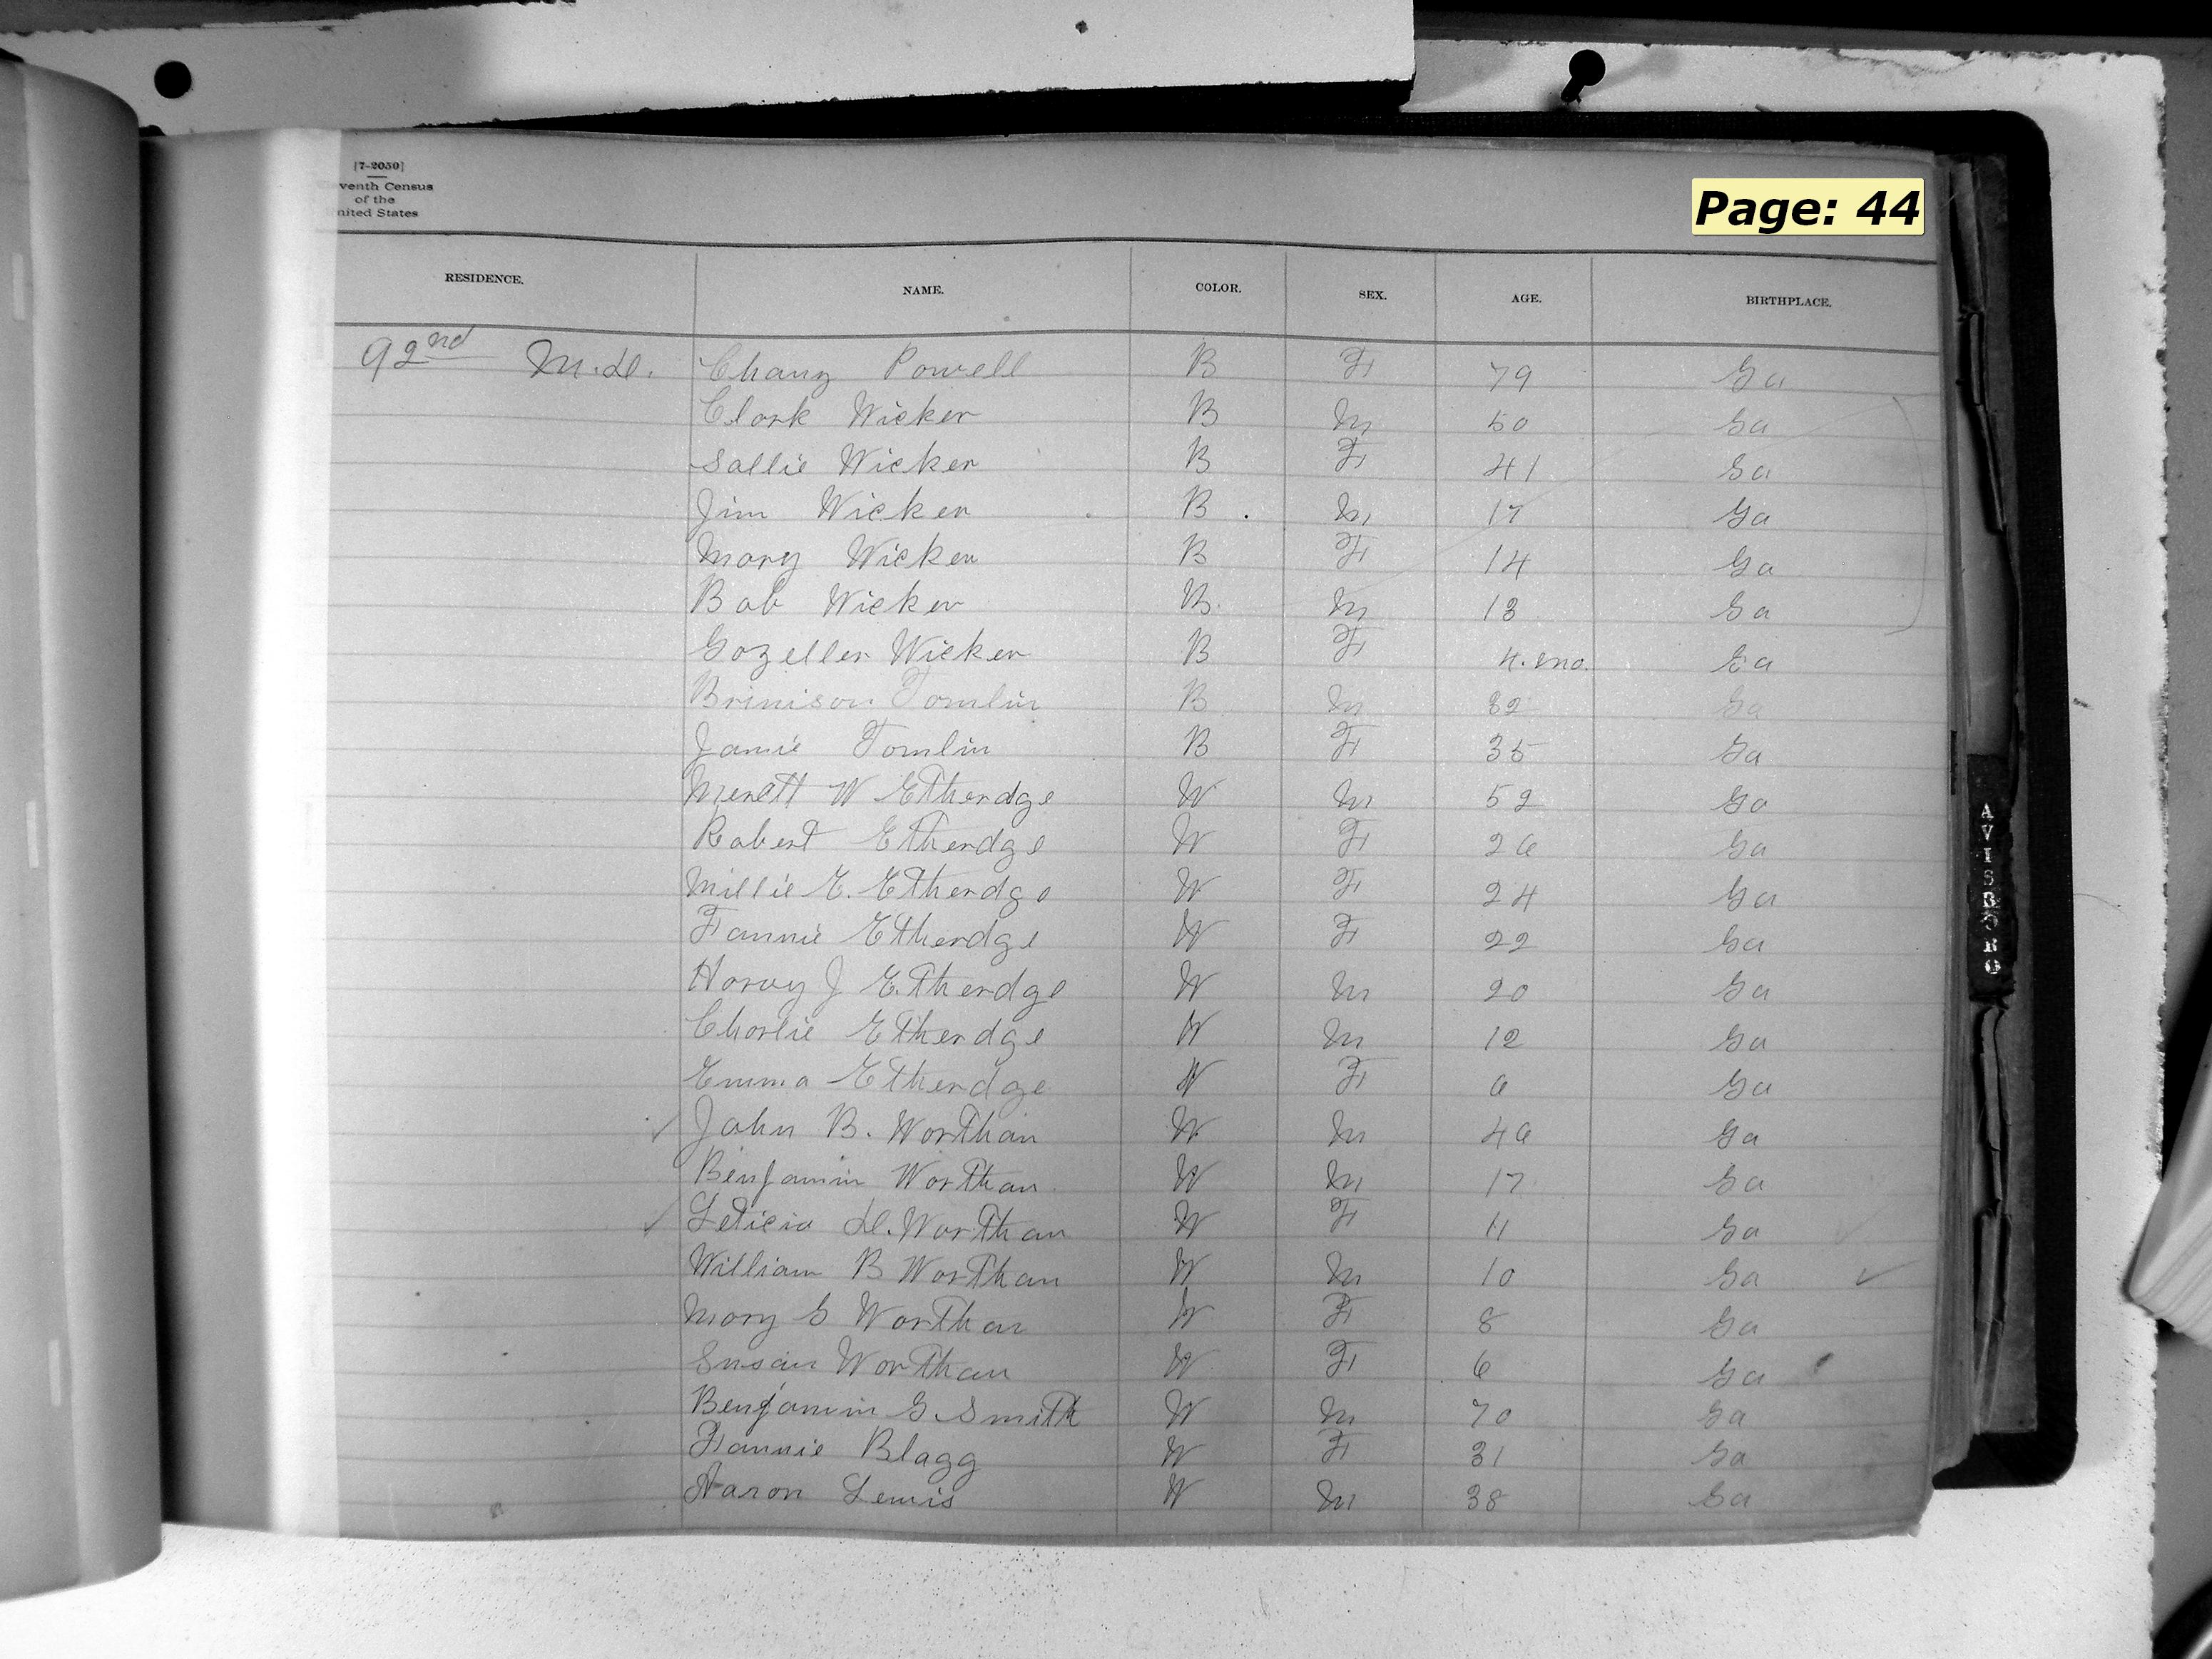 [7-2050]
venth Census
of the
nited States
Page: 44
RESIDENCE. NAME. COLOR. SEX. AGE. BIRTHPLACE.
92nd M.D. Chany Powell B F 79 Ga
Clark Wicker B M 50 Ga
Sallie Wicker B F 41 Ga
Jim Wicker B M 17 Ga
Mary Wicker B F 14 Ga
Bob Wicker B M 13 Ga
Gozeller Wicker B F 4.mo. Ga
Brinison Tomlin B M 32 Ga
Janie Tomlin B F 35 Ga
Merett W Etherdge W M 52 Ga
Robert Etherdge W F 26 Ga
Millie E. Etherdge W F 24 Ga
Fannie Etherdge W F 22 Ga
Harvy J Etherdge W M 20 Ga
Charlie Etherdge W M 12 Ga
Emma Etherdge W F 6 Ga
John B. Worthan W M 46 Ga
Benjamin Worthan W M 17 Ga
Leticia D. Worthan W F 11 Ga
William B Worthan W M 10 Ga
Mary G Worthan W F 8 Ga
Susan Worthan W F 6 Ga
Benjamin G. Smith W M 70 Ga
Fannie Blagg W F 31 Ga
Aaron Lewis W M 38 Ga
AVISBORO